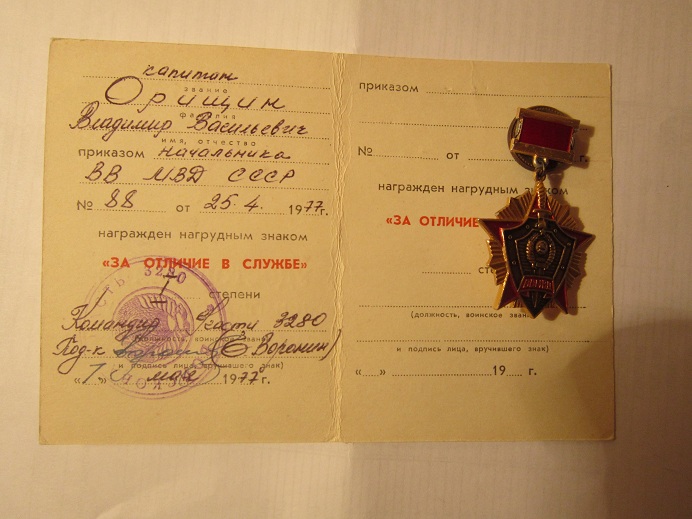 капитан
звание
Орищин
фамилия
Владимир Васильевич
имя, отчество
приказом начальника
ВВ МВД СССР
№ 88 от 25.4. 1977 г.
награжден нагрудным знаком
«ЗА ОТЛИЧИЕ В СЛУЖБЕ»
степени
Командир части 3280
(должность, воинское звание
Под-к (Воронин)
и подпись лица, вручившего знак)
мая 1977 г.
3280
приказом
№ от г.
награжден нагрудным знаком
«ЗА ОТЛИЧИЕ
степени
(должность, воинское
и подпись лица, вручившего знак)
« » 19 г.